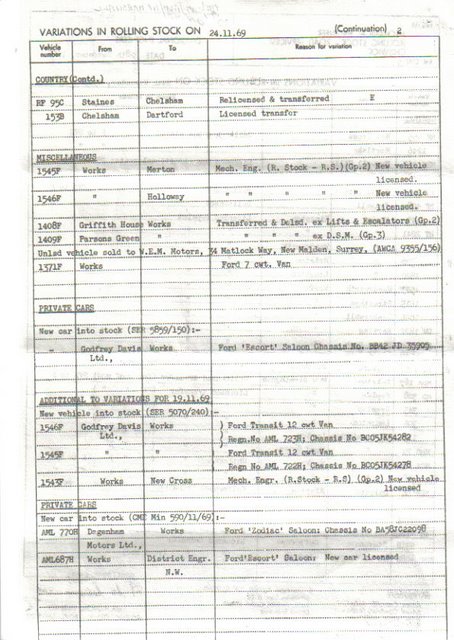 VARIATIONS IN ROLLING STOCK ON 24.11.69 (Continuation) 2
Vehicle number From To Reason for variation
COUNTRY(Contd.)
RF 95C Staines Chelsham Relicensed & transferred E
153B Chelsham Dartford Licensed transfer
MISCELLANEOUS
1545F Works Merton Mech. Eng. (R. Stock - R.S.)(Gp.2) New vehicle
licensed.
1546F " Holloway " " " " " New vehicle
licensed.
1408F Griffith House Works Transferred & Delsd. ex Lifts & Escalators (Gp.2)
1409F Parsons Green " " " " ex D.S.M. (Gp.3)
Unlsd vehicle sold to W.E.M. Motors, 34 Matlock Way, New Malden, Surrey, (AWCA 9355/156)
1371F Works Ford 7 cwt. Van
PRIVATE CARS
New car into stock (SER 5859/150):-
- Godfrey Davis Works Ford 'Escort' Saloon Chassis No. BB42 JD 35905
Ltd.,
ADDITIONAL TO VARIATIONS FOR 19.11.69
New vehicle into stock (SER 5070/240):-
1546F Godfrey Davis Works ) Ford Transit 12 cwt Van
Ltd., ) Regn.No AML 723H; Chassis No BC05JK54282
1545F " " ) Ford Transit 12 cwt Van
) Regn No AML 722H; Chassis No BC05JK54278
1543F Works New Cross Mech. Engr. (R.Stock - R.S) (Gp.2) New vehicle
licensed
PRIVATE CARS
New car into stock (CME Min 590/11/69):-
AML 770H Dagenham Works Ford 'Zodiac' Saloon: Chassis No BA58JC22098
Motors Ltd.,
AML687H Works District Engr. Ford'Escort' Saloon: New car licensed
N.W.